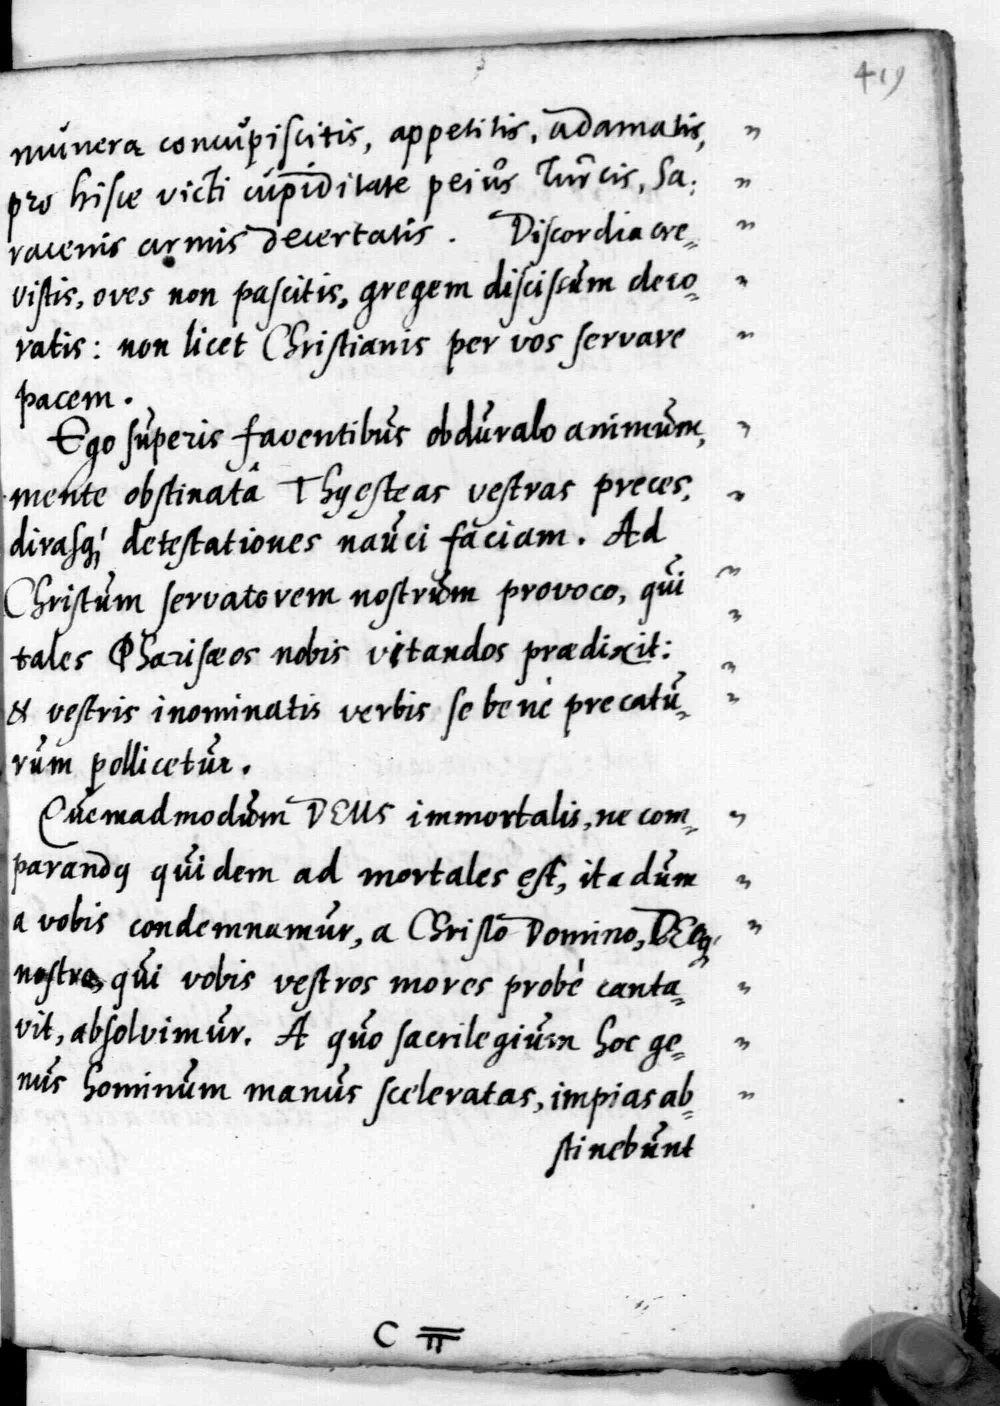 419
munera concupiscitis, appetitis, adamatis, "
pro hisce victi cupiditate peius Turcis, Sa: "
racenis armis decertatis. Discordia cre= "
vistis, oves non pascitis, gregem discissum devo= "
ratis: non licet Christianis per vos servare "
pacem.
Ego superis faventibus obdurato animum, "
mente obstinatâ Thyesteas vestras preces, "
dirasq; detestationes nauci faciam. Ad
Christum servatorem nostrum provoco, qui "
tales Pharisæos nobis vitandos prædixit: "
& vestris inominatis verbis se bene precatu= "
rum pollicetur.
Quemadmodum DEUS immortalis, ne com= "
parandq quidem ad mortales est, ita dum "
a vobis condemnamur, a Christo Domino, DEoq; "
nostro, qui vobis vestros mores probè canta= "
vit, absolvimur. A quo sacrilegium hoc ge= "
nus hominum manus sceleratas, impias ab= "
stinebunt
C II